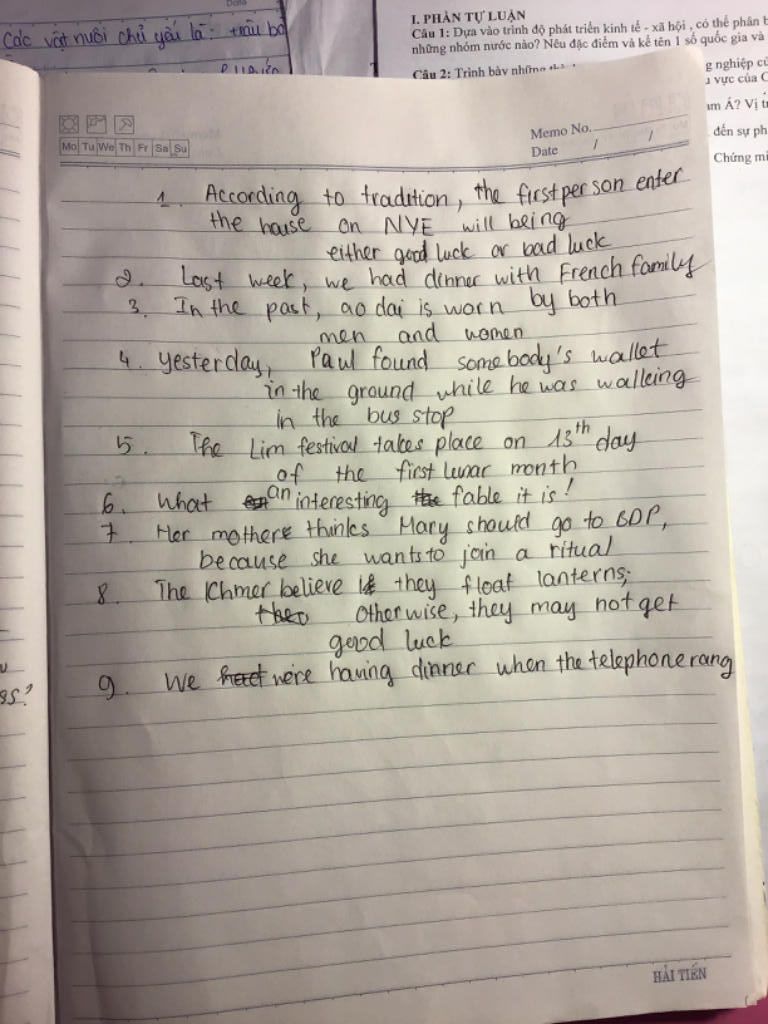 Các vật nuôi chủ yếu là: trâu bò
I. PHẦN TỰ LUẬN
Câu 1: Dựa vào trình độ phát triển kinh tế - xã hội , có thể phân
những nhóm nước nào? Nêu đặc điểm và kể tên 1 số quốc gia và
Câu 2: Trình bày những
g nghiệp
vực của
Á? Vị
đến sự
Chứng
Mo Tu We Th Fr Sa Su
Memo No.
Date / /
1. According to tradition, the first person enter
the house on NYE will being
either good luck or bad luck
2. Last week, we had dinner with French family
3. In the past, ao dai is worn by both
men and women
4. yesterday, Paul found somebody's wallet
in the ground while he was walking
in the bus stop
5. The Lim festival takes place on 13th day
of the first lunar month
6. What an interesting fable it is!
7. Her mother thinks Mary should go to BDP,
because she wants to join a ritual
8. The Khmer believe if they float lanterns;
Otherwise, they may not get
good luck
9. We were having dinner when the telephone rang
HẢI TIẾN